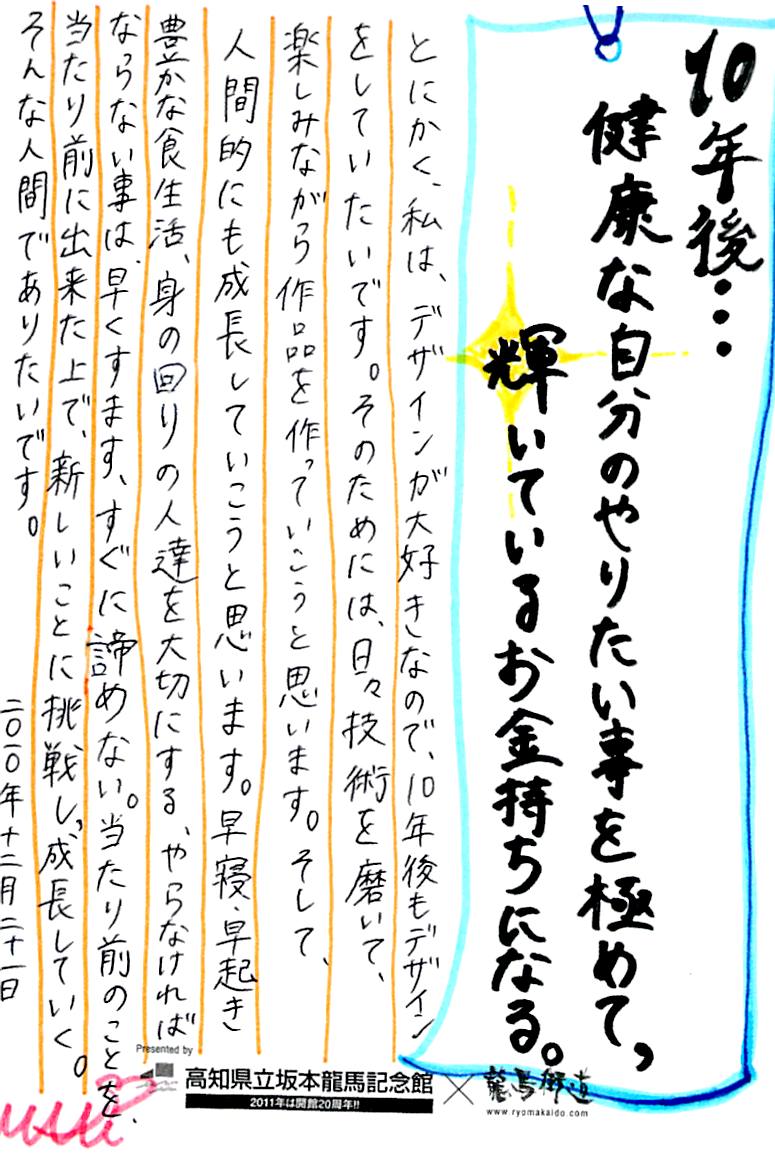 10年後…
健康な自分のやりたい事を極めて、
輝いているお金持ちになる。
とにかく、私は、デザインが大好きなので、10年後もデザイン
をしていたいです。そのためには、日々技術を磨いて、
楽しみながら作品を作っていこうと思います。そして、
人間的にも成長していこうと思います。早寝・早起き
豊かな食生活、身の回りの人達を大切にする、やらなければ
ならない事は、早くすます、すぐに諦めない。当たり前のことを、
当たり前に出来た上で、新しいことに挑戦し、成長していく。
そんな人間でありたいです。
二〇一〇年十二月二十一日
Presented by
高知県立坂本龍馬記念館×龍馬街道
2011年は開館20周年!!
www.ryomakaido.com